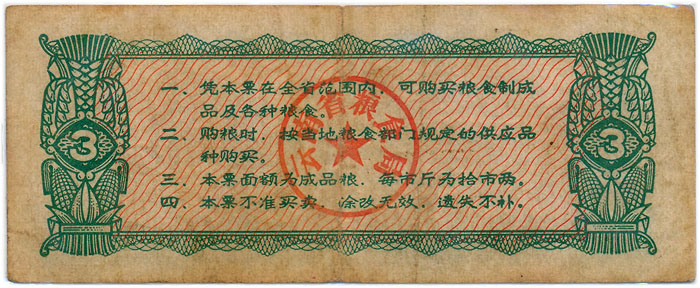 一、凭本票在全省范围内，可购买粮食制成
品及各种粮食。
二、购粮时，按当地粮食部门规定的供应品
种购买。
三、本票面额为成品粮，每市斤为拾市两。
四、本票不准买卖，涂改无效，遗失不补。
云南省粮食局
3
3